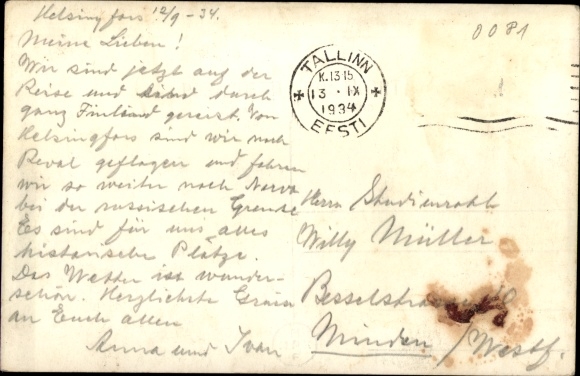 Helsingfors 12/9-34.
Meine Lieben!
Wir sind jetzt auf der
Reise und sind durch
ganz Finland gereist. Von
Helsingfors sind wir nach
Reval geflogen und fahren
wir so weiter nach Narva
bei der russischen Grenze
Es sind für uns alles
historische Plätze.
Das Wetter ist wunder-
schön. Herzlichste Grüsse
an Euch allen
Anna und Ivan
0081
TALLINN
K.13 15
13 · IX
1934
EESTI
Herrn Studienrath
Willy Müller
Minden / Westf.